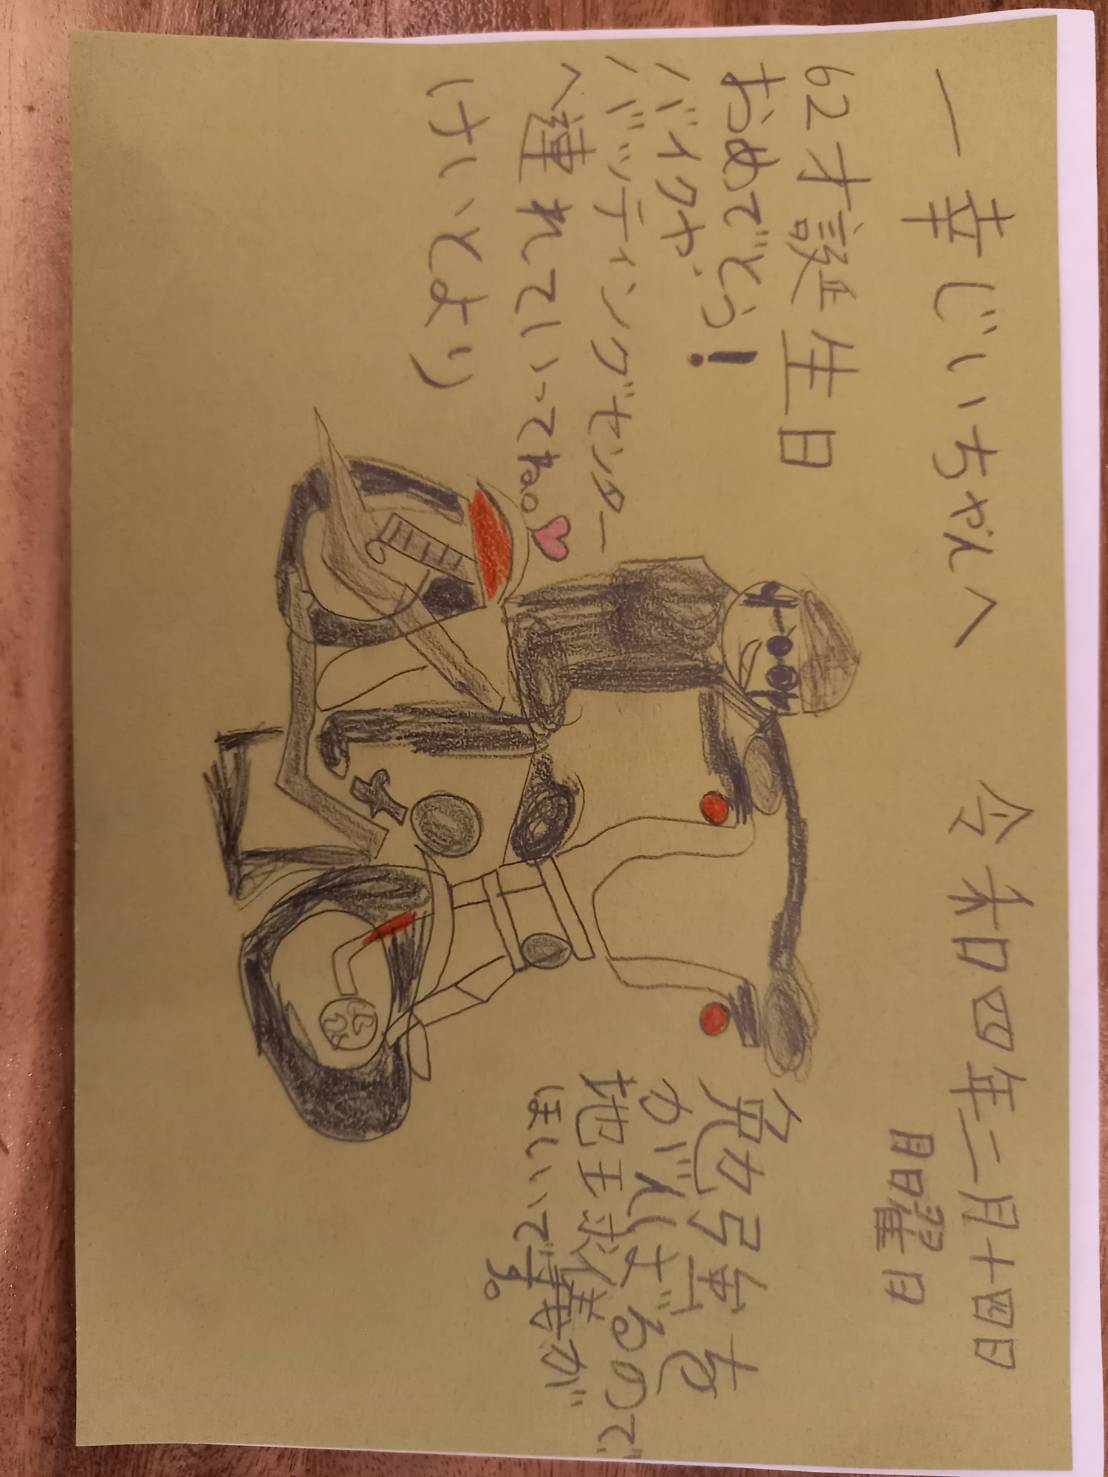 一幸じいちゃんへ 令和四年二月十四日
月曜日
62才誕生日
おめでとう!
バイクや、
バッティングセンター
へ連れていってね。
けいとより
勉強を
がんばるので
地球儀が
ほしいです。